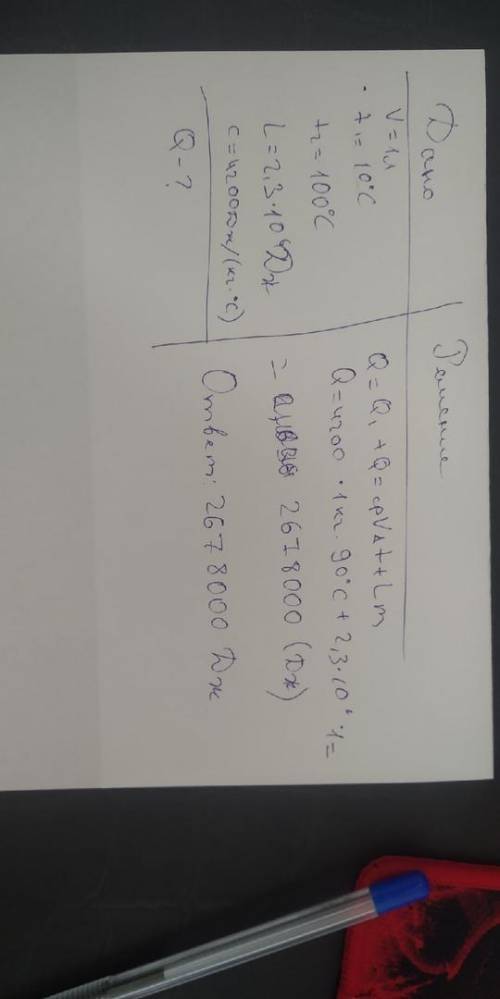 Дано
V=1л
t₁=10°C
t₂=100°C
L=2,3·10⁶Дж
c=4200Дж/(кг·°C)
Q-?
Решение
Q=Q₁+Q=cρVΔt+Lm
Q=4200·1кг·90°C+2,3·10⁶·1=
= 2678000 (Дж)
Ответ: 2678000 Дж